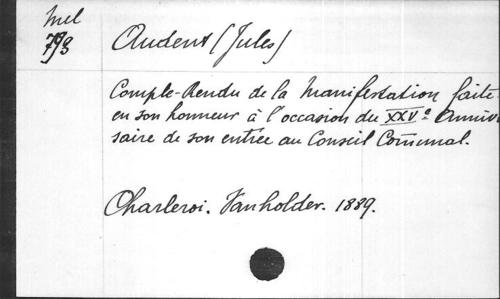 Mel
79/3
Audent (Jules)
Compte-Rendu de la Manifestation faite
en son honneur à l'occasion du XXVe Anniver
saire de son entrée au Conseil Com̄unal.
Charleroi. Vanholder. 1889.